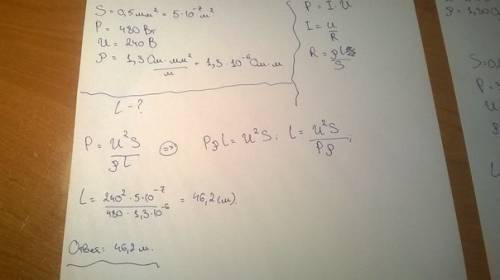 S = 0,5 мм² = 5·10⁻⁷ м²
P = 480 Вт
U = 240 В
ρ = 1,3 Ом·мм²/м = 1,3·10⁻⁶ Ом·м
L - ?
P = I·U
I = U/R
R = ρL/S
P = U²S/ρL ⇒ PρL = U²S; L = U²S/Pρ;
L = 240²·5·10⁻⁷/480·1,3·10⁻⁶ = 46,2 (м).
Ответ: 46,2 м.